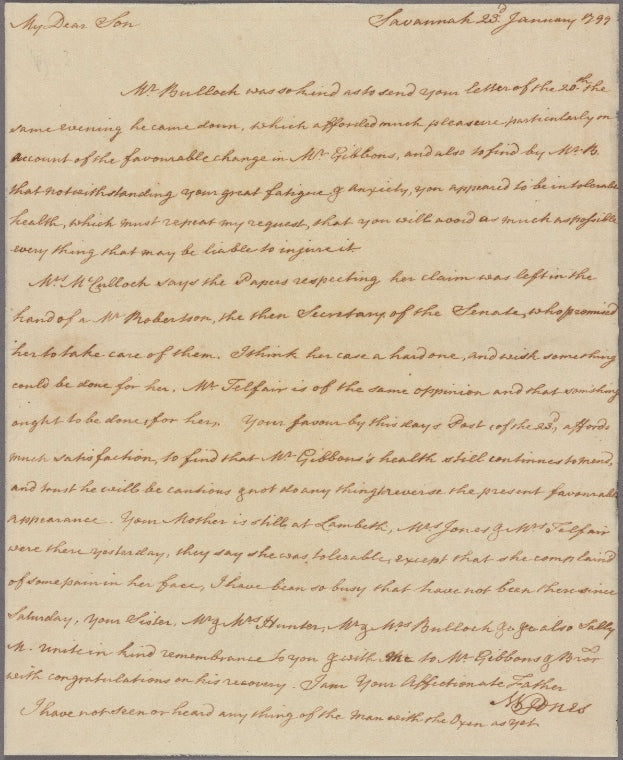 My Dear Son Savannah 23d January 1799
Mr. Bulloch was so kind as to send your letter of the 20th the
same evening he came down, which afforded much pleasure particularly on
account of the favourable change in Mr Gibbons, and also to find by Mr. B.
that notwithstanding your great fatigue & anxiety, you appeared to be in tolerable
health, which must repeat my request, that you will avoid as much as possible
every thing that may be liable to injure it.
Mrs McCulloch says the Papers respecting her claim was left in the
hand of a Mr Robertson, the then Secretary of the Senate, who promised
her to take care of them. I think her case a hard one, and wish something
could be done for her. Mr Telfair is of the same oppinion and that somthing
ought to be done for her. Your favour by this days Post of the 23d, affords
much satisfaction, to find that Mr Gibbons's health still continues to mend,
and trust he will be cautious & not do any thing to reverse the present favourable
appearance. Your Mother is still at Lambeth, Mrs Jones & Mrs Telfair
were there yesterday, they say she was tolerable, except that she complaind
of some pain in her face, I have been so busy that have not been there since
Saturday, Your Sister, Mr & Mrs Hunter, Mr & Mrs Bulloch also Sally
M. unite in kind remembrance to you & with me to Mr Gibbons & Bror
with congratulations on his recovery. I am Your Affectionate Father
N Jones
I have not seen or heard any thing of the man with the Oxen as yet